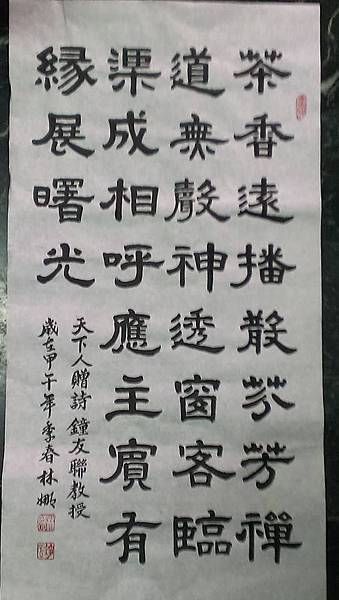 茶香遠播散芬芳禪
道無聲神透窗客臨
渠成相呼應主賓有
緣展曙光
天下人贈詩鐘友聯教授
歲在甲午年季春林娜